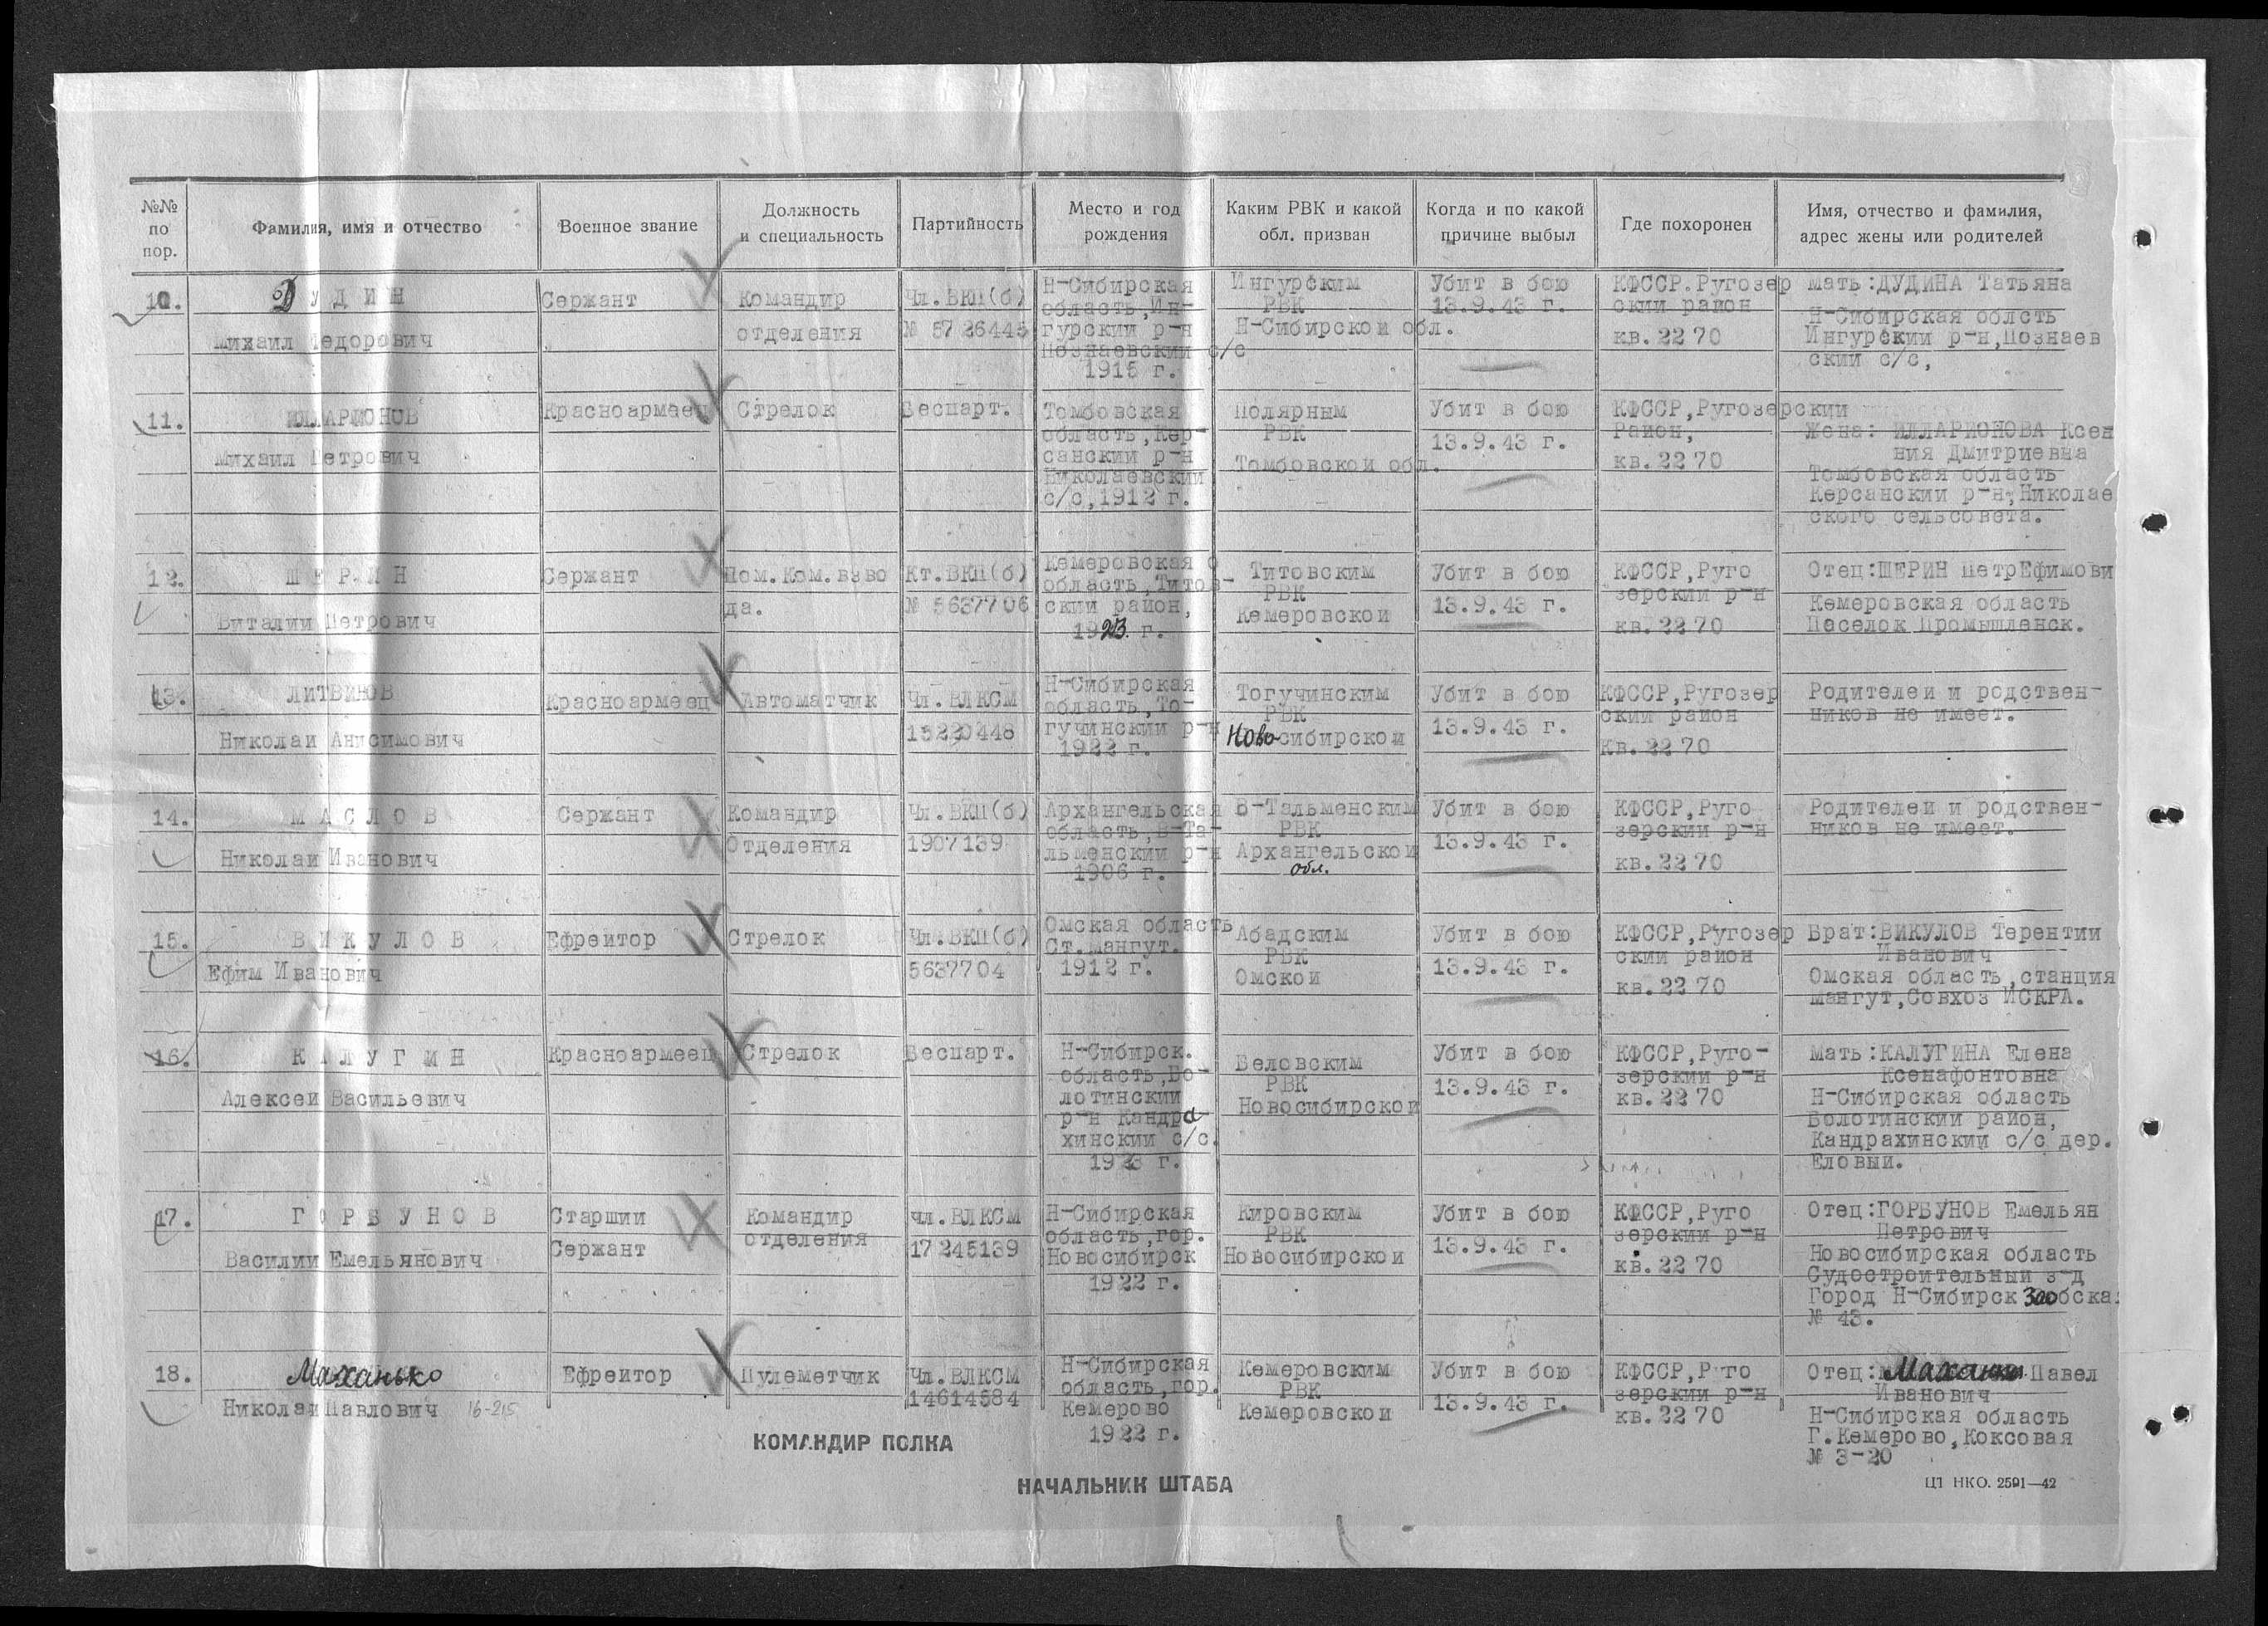 №№ по пор.
Фамилия, имя и отчество
Военное звание
Должность и специальность
Партийность
Место и год рождения
Каким РВК и какой обл. призван
Когда и по какой причине выбыл
Где похоронен
Имя, отчество и фамилия, адрес жены или родителей
10.
ДУДИН
Михаил Федорович
Сержант
Командир
отделения
Чл.ВКП(б)
№ 5726445
Н-Сибирская
область,Ин-
гурский р-н
Познаевский с/с
1915 г.
Ингурским
РВК
Н-Сибирской обл.
Убит в бою
13.9.43 г.
КФССР.Ругозер
ский район
кв.2270
мать:ДУДИНА Татьяна
Н-Сибирская облсть
Ингурский р-н,Познаев
ский с/с,
11.
ИЛЛАРИОНОВ
Михаил Петрович
Красноармеец
Стрелок
Беспарт.
Томбовская
область,Кер-
санский р-н
Николаевский
с/с,1912 г.
Полярным
РВК
Томбовской обл.
Убит в бою
13.9.43 г.
КФССР,Ругозерский
Район,
кв.2270
Жена: ИЛЛАРИОНОВА Ксен
ния Дмитриевна
Томбовская область
Керсанский р-н,Николае
ского сельсовета.
12.
ШЕРИН
Виталий Петрович
Сержант
Пом.Ком.взво
да.
Кт.ВКП(б)
№ 5637706
Кемеровская о
область,Титов-
ский район,
1923. г.
Титовским
РВК
Кемеровской
Убит в бою
13.9.43 г.
КФССР,Руго
зерский р-н
кв.2270
Отец:ШЕРИН ПетрЕфимови
Кемеровская область
Паселок Промышленск.
13.
ЛИТВИНОВ
Николай Анисимович
Красноармеец
Автоматчик
Чл.ВЛКСМ
15220448
Н-Сибирская
область,То-
гучинский р-н
1922 г.
Тогучинским
РВК
Новосибирской
Убит в бою
13.9.43 г.
КФССР,Ругозер
ский район
Кв.2270
Родителей и родствен-
ников не имеет.
14.
МАСЛОВ
Николай Иванович
Сержант
Командир
Отделения
Чл.ВКП(б)
1907139
Архангельская
область,В-Та-
льменский р-н
1906 г.
В-Тальменским
РВК
Архангельской
обл.
Убит в бою
13.9.43 г.
КФССР,Руго
зерский р-н
кв.2270
Родителей и родствен-
ников не имеет.
15.
ВИКУЛОВ
Ефим Иванович
Ефрейтор
Стрелок
Чл.ВКП(б)
5637704
Омская область
Ст.Мангут.
1912 г.
Абадским
РВК
Омской
Убит в бою
13.9.43 г.
КФССР,Ругозер
ский район
кв.2270
Брат:ВИКУЛОВ Терентий
Иванович
Омская область,станция
Мангут,Совхоз ИСКРА.
16.
КАЛУГИН
Алексей Васильевич
Красноармеец
Стрелок
Беспарт.
Н-Сибирск.
область,Бо-
лотинский
р-н Кандра-
хинский с/с.
1923 г.
Беловским
РВК
Новосибирской
Убит в бою
13.9.43 г.
КФССР,Руго-
зерский р-н
кв.2270
мать:КАЛУГИНА Елена
Ксенафонтовна
Н-Сибирская область
Болотинский район,
Кандрахинский с/с дер.
Еловый.
17.
ГОРБУНОВ
Василий Емельянович
Старший
Сержант
Командир
отделения
чл.ВЛКСМ
17245139
Н-Сибирская
область,гор.
Новосибирск
1922 г.
Кировским
РВК
Новосибирской
Убит в бою
13.9.43 г.
КФССР,Руго
зерский р-н
кв.2270
Отец:ГОРБУНОВ Емельян
Петрович
Новосибирская область
Судостроительный з-д
Город Н-Сибирск Заобска
№ 43.
18.
Маханько
Николай Павлович 16-215
Ефрейтор
Пулеметчик
Чл.ВЛКСМ
14614584
Н-Сибирская
область,гор.
Кемерово
1922 г.
Кемеровским
РВК
Кемеровской
Убит в бою
13.9.43 г.
КФССР,Р го
зерский р-н
кв.2270
Отец: Маханько Павел
Иванович
Н-Сибирская область
Г.Кемерово,Коксовая
№ 3-20
КОМАНДИР ПОЛКА
НАЧАЛЬНИК ШТАБА
ЦТ НКО. 2591—42